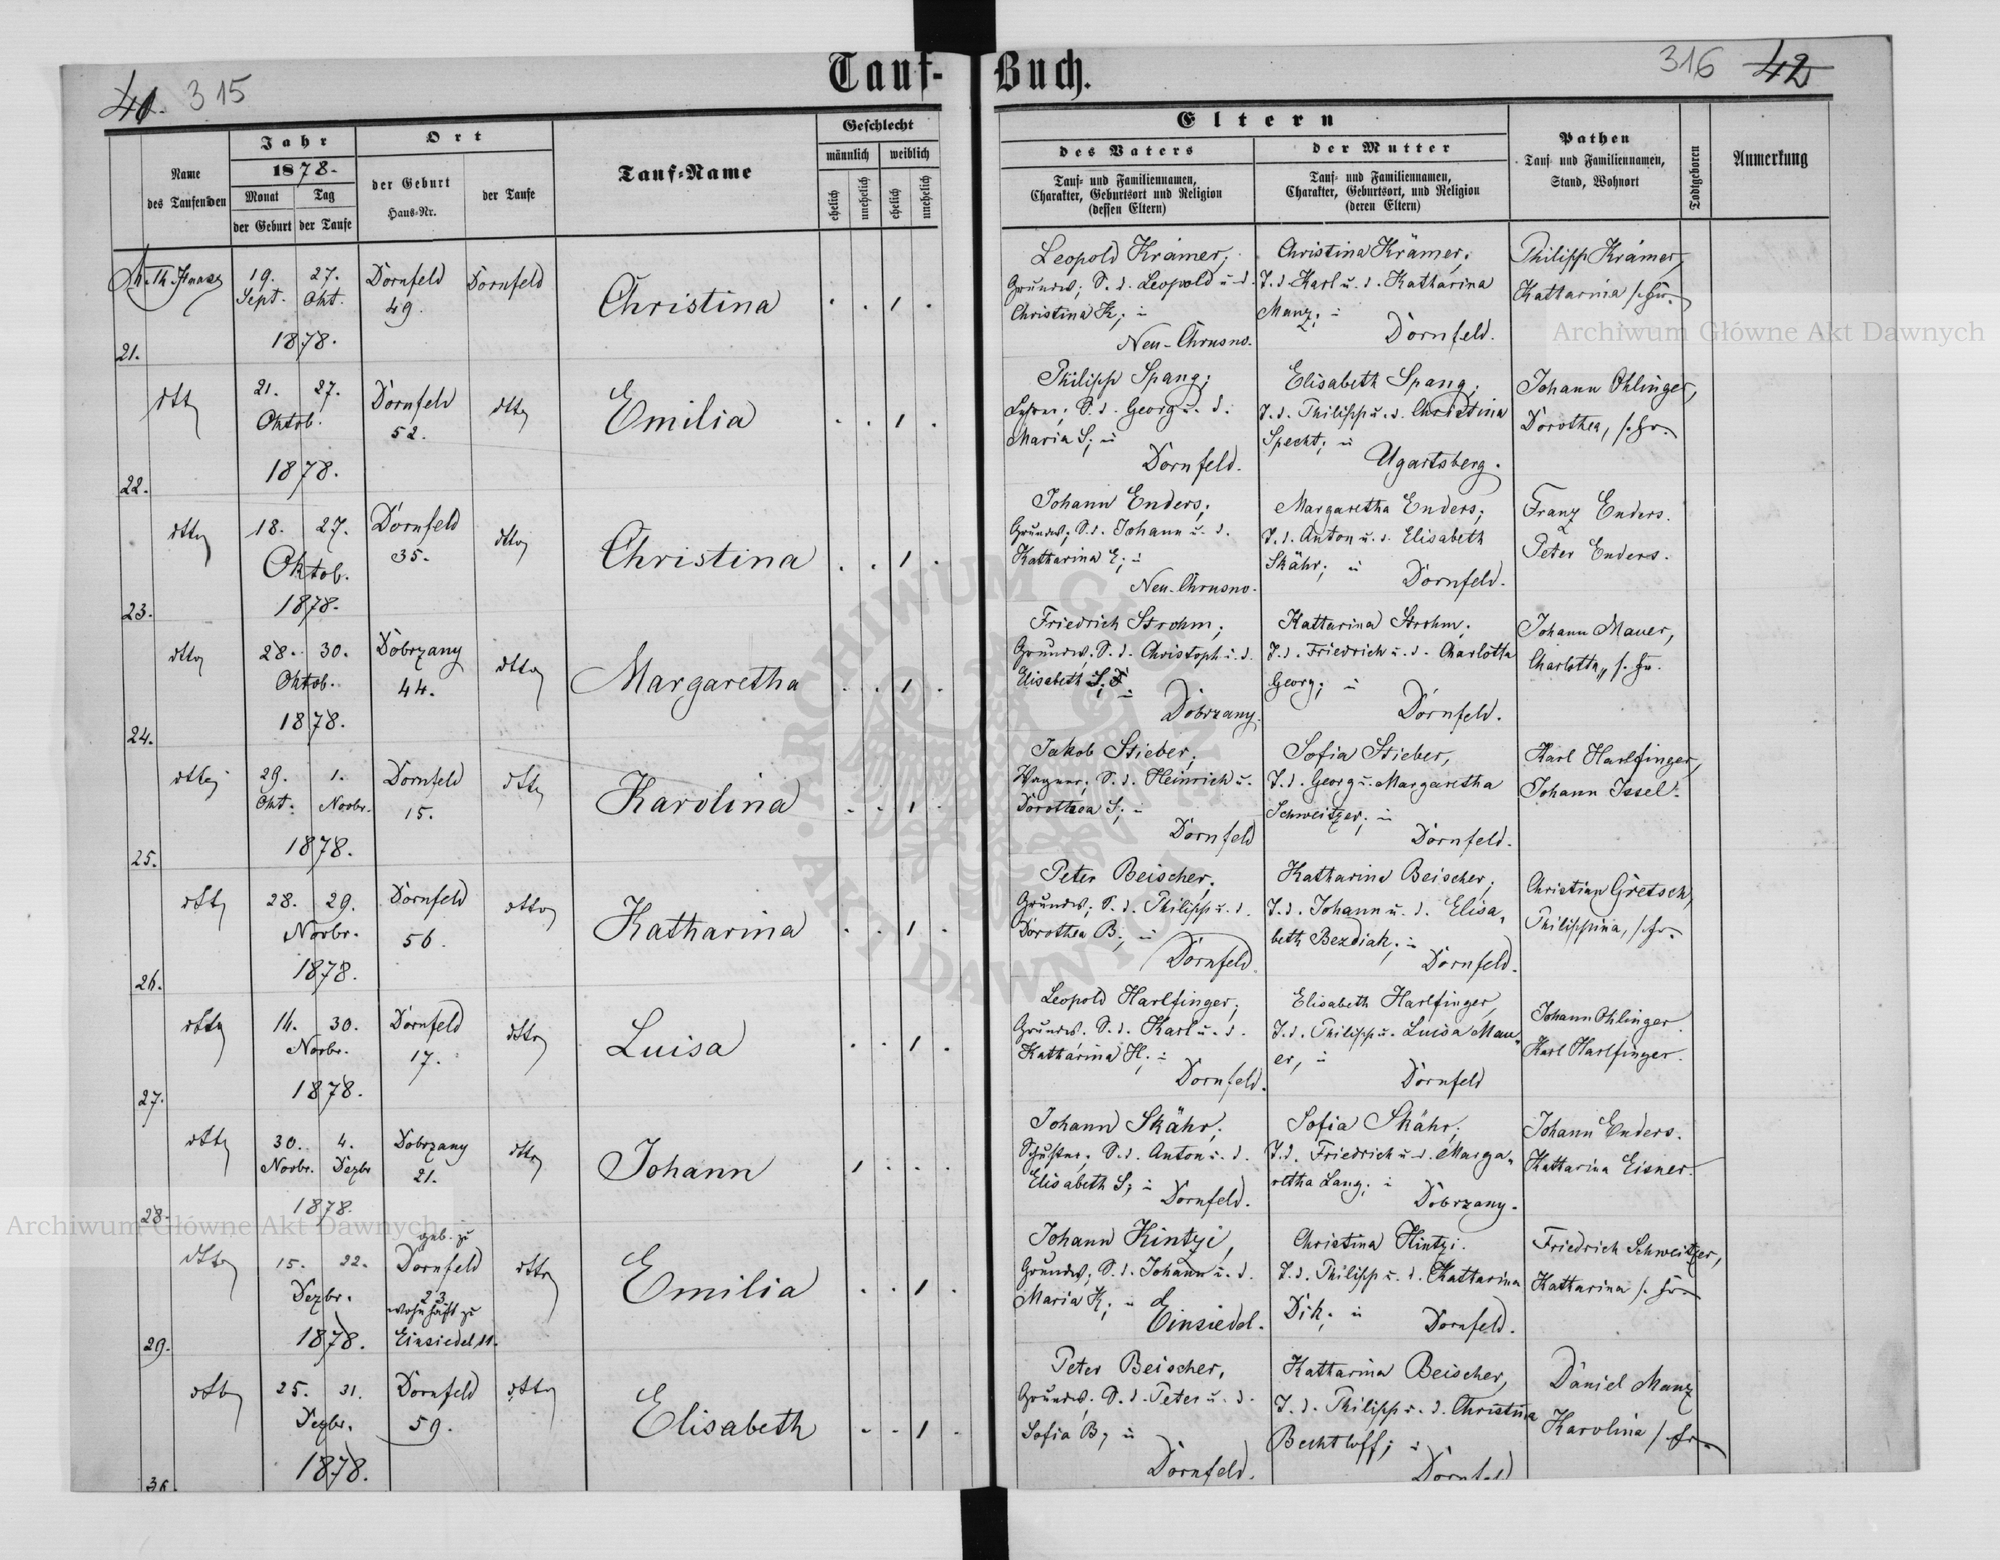 Tauf-Buch.
41. 315
316 42
Name
des Taufenden
Jahr
1878.
Monat
Tag
der Geburt
der Taufe
Ort
der Geburt
Haus-Nr.
der Taufe
Tauf-Name
Geschlecht
männlich
weiblich
ehelich
unehelich
ehelich
unehelich
Eltern
des Vaters
Tauf- und Familiennamen,
Charakter, Geburtsort und Religion
(dessen Eltern)
der Mutter
Tauf- und Familiennamen,
Charakter, Geburtsort, und Religion
(deren Eltern)
Pathen
Tauf- und Familiennamen,
Stand, Wohnort
Todtgeboren
Anmerkung
21.
19. 27.
Sept. Okt.
1878.
Dornfeld
49.
Dornfeld
Christina
Leopold Krämer;
Grundw; S. d. Leopold u. d.
Christina K; in
Neu-Chrusno.
Christina Krämer;
T. d. Karl u. d. Katharina
Manz; in
Dornfeld.
Philipp Krämer,
Katharina s. Fr.
22.
dtto
21. 27.
Oktob.
1878.
Dornfeld
52.
dtto
Emilia
Philipp Spang;
S. d. Georg u. d.
Maria S; in
Dornfeld.
Elisabeth Spang;
T. d. Philipp u. d. Christina
Specht; in
Ugartsberg.
Johann Ohlinger,
Dorothea, s. Fr.
23.
dtto
18. 27.
Oktob.
1878.
Dornfeld
35.
dtto
Christina
Johann Enders;
Grundw; S. d. Johann u. d.
Katharina E; in
Neu-Chrusno.
Margaretha Enders;
T. d. Anton u. d. Elisabeth
Skähr; in
Dornfeld.
Franz Enders.
Peter Enders.
24.
dtto
28. 30.
Oktob.
1878.
Dobrzany
44.
dtto
Margaretha
Friedrich Strohm;
Grundw. S. d. Christoph u. d.
Elisabeth S; in
Dobrzany.
Katharina Strohm;
T. d. Friedrich u. d. Charlotta
Georg; in
Dornfeld.
Johann Mauer,
Charlotta, s. Fr.
25.
dtto
29. 1.
Okt. Novbr.
1878.
Dornfeld
15.
dtto
Karolina
Jakob Stieber;
Wagner; S. d. Heinrich u.
Dorothea S; in
Dornfeld
Sofia Stieber,
T. d. Georg u. Margaretha
Schweitzer; in
Dornfeld.
Karl Harlfinger,
Johann Issel.
26.
dtto
28. 29.
Novbr.
1878.
Dornfeld
56.
dtto
Katharina
Peter Beischer;
Grundw; S. d. Philipp u. d.
Dorothea B; in
Dornfeld.
Katharina Beischer;
T. d. Johann u. d. Elisa-
beth Bezdiak; in
Dornfeld.
Christian Gretsch,
Philippina, s. Fr.
27.
dtto
14. 30.
Novbr.
1878.
Dornfeld
17.
dtto
Luisa
Leopold Harlfinger;
Grundw. S. d. Karl u. d.
Katharina H; in
Dornfeld.
Elisabeth Harlfinger,
T. d. Philipp u. Luisa Mau-
er, in
Dornfeld
Johann Ohlinger.
Karl Harlfinger.
28.
dtto
30. 4.
Novbr. Dezbr
1878.
Dobrzany
21.
dtto
Johann
Johann Skähr;
Schuster; S. d. Anton u. d.
Elisabeth S; in
Dornfeld.
Sofia Skähr;
T. d. Friedrich u. d. Marga-
retha Lang; in
Dobrzany.
Johann Enders.
Katharina Eisner.
29.
dtto
15. 22.
Dezbr.
1878.
geb. zu
Dornfeld
23
wohnhaft zu
Einsiedel 11.
dtto
Emilia
Johann Kintzi,
Grundw; S. d. Johann u. d.
Maria K; in
Einsiedel.
Christina Kintzi.
T. d. Philipp u. d. Katharina
Dik; in
Dornfeld.
Friedrich Schweitzer,
Katharina s. Fr.
30.
dtto
25. 31.
Dezbr.
1878.
Dornfeld
59.
dtto
Elisabeth
Peter Beischer,
Grundw. S. d. Peter u. d.
Sofia B; in
Dornfeld.
Katharina Beischer,
T. d. Philipp u. d. Christina
Bechtloff; in
Dornfeld
Daniel Manz
Karolina s. Fr.
Archiwum Główne Akt Dawnych
Archiwum Główne Akt Dawnych
ARCHIWUM GŁÓWNE AKT DAWNYCH